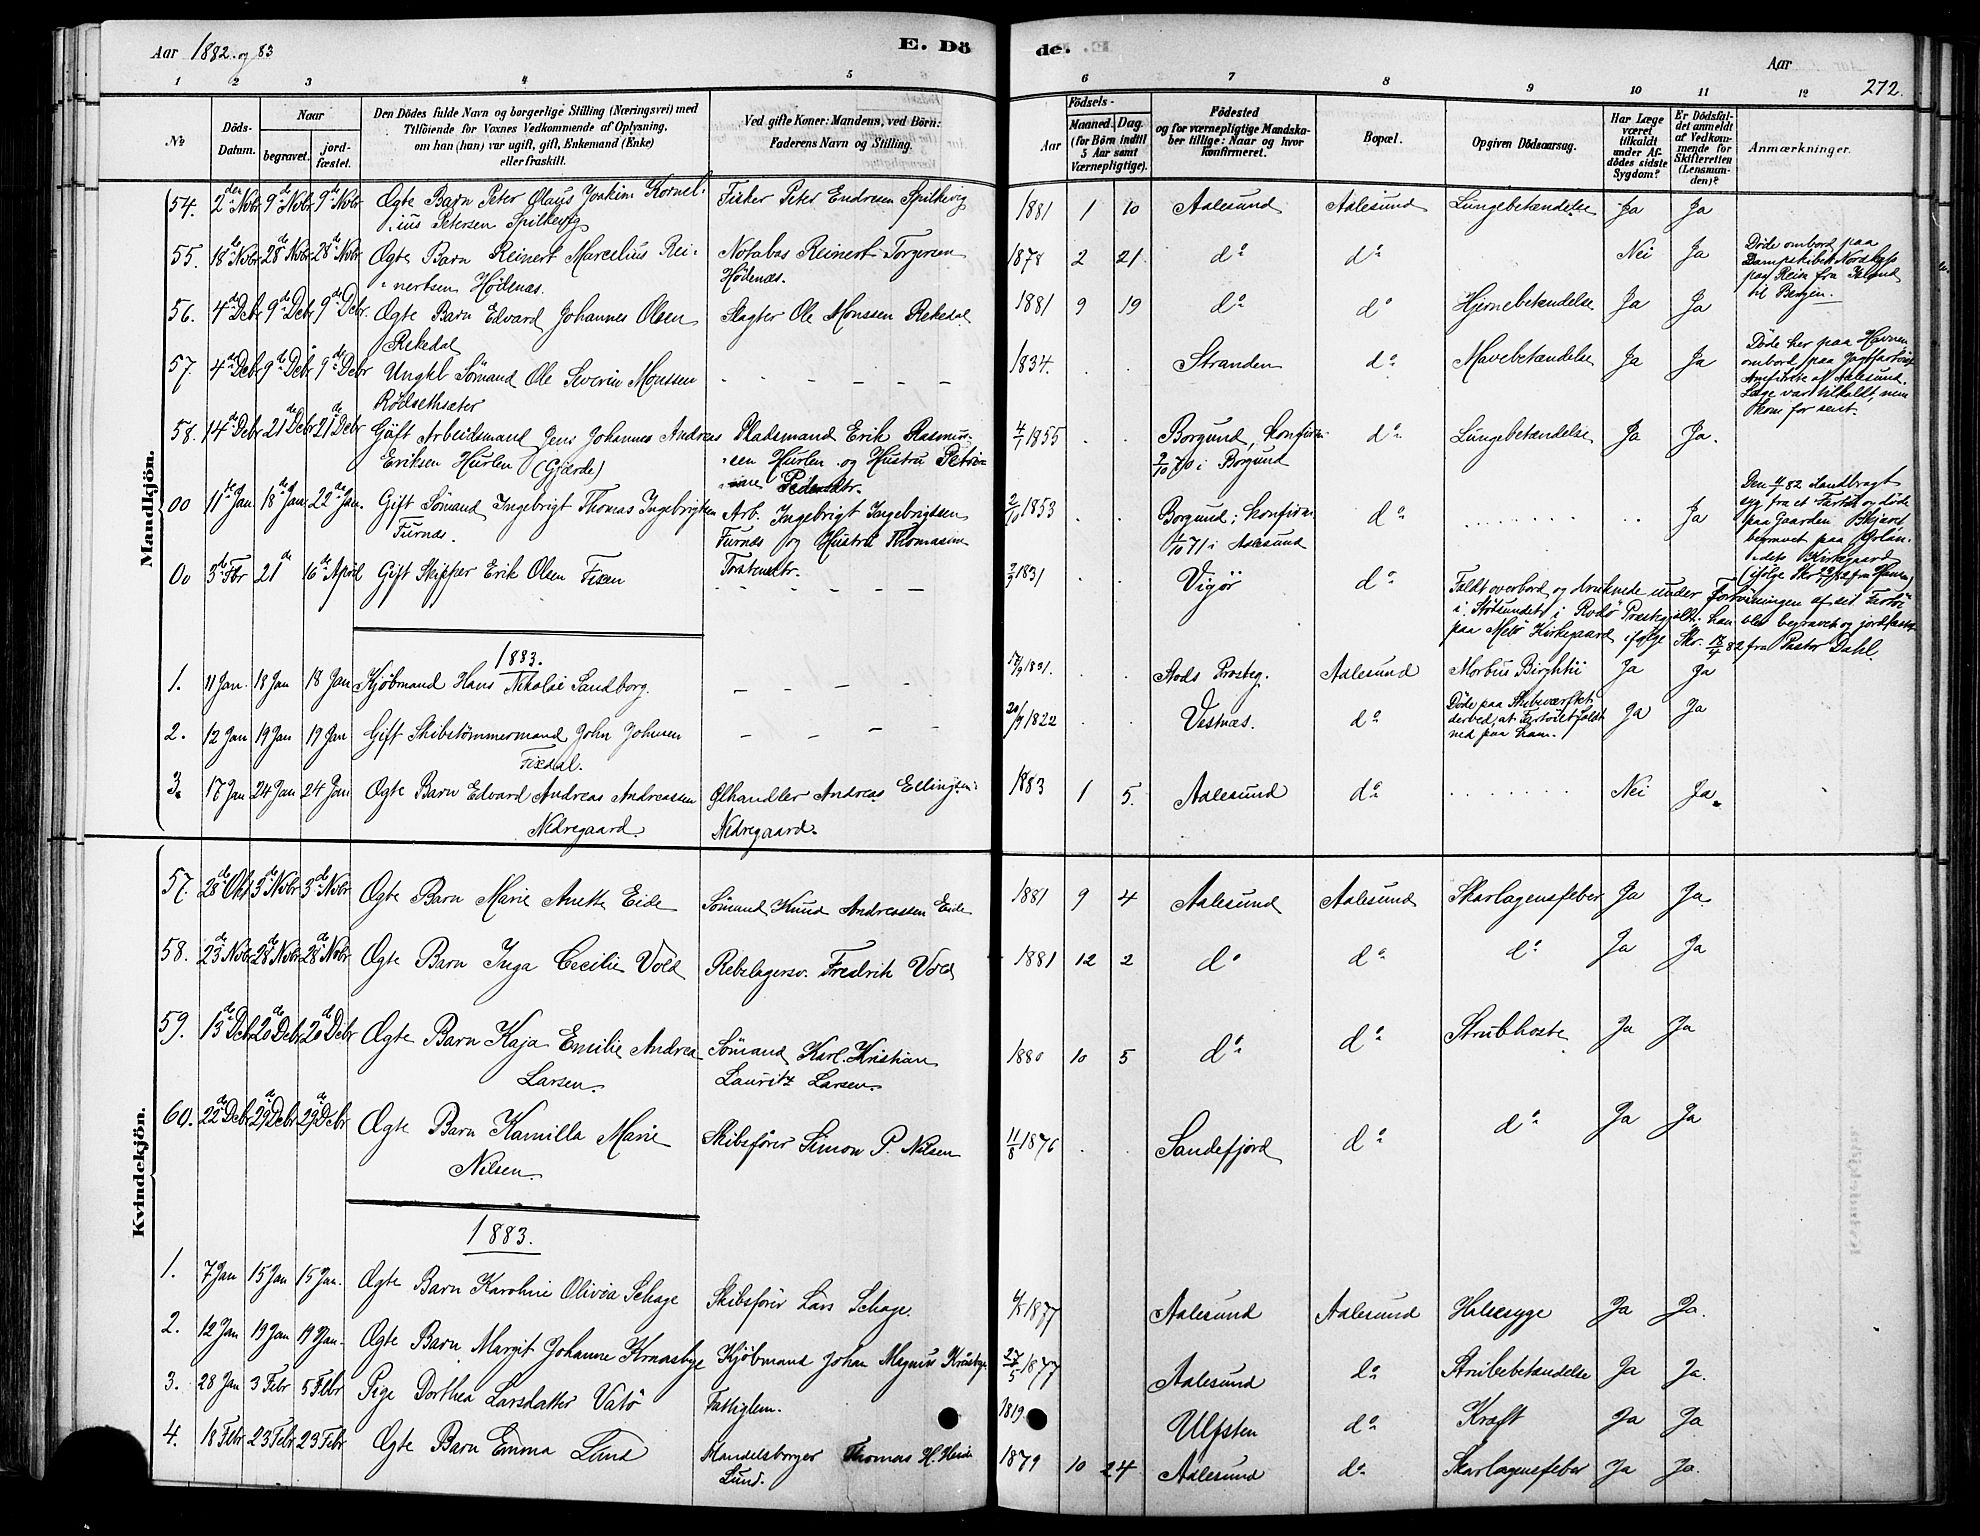 Aar 1882. og 83
E. Dö
de.
Aar
272.
1 2 3 4 5 6 7 8 9 10 11 12
No
Döds-
Datum.
Naar
begravet.
jord-
fæstet.
Den Dödes fulde Navn og borgerlige Stilling (Næringsvei) med
Tilföiende for Voxnes Vedkommende af Oplysning,
om han (hun) var ugift, gift, Enkemand (Enke)
eller fraskilt.
Ved gifte Koner: Mandens, ved Börn:
Faderens Navn og Stilling.
Aar
Födsels-
Maaned. Dag.
(for Börn indtil
5 Aar samt
Værnepligtige).
Födested
og for værnepligtige Mandska-
ber tillige: Naar og hvor
konfirmeret.
Bopæl.
Opgiven Dödsaarsag.
Har Læge
været
tilkaldt
under Af-
dödes sidste
Sygdom?
Er Dödsfal-
det anmeldt
af Vedkom-
mende for
Skifteretten
(Lensman-
den)?
Anmærkninger.
Mandkjön.
54. 2den Novbr 9de Novbr 9de Novbr Ægte Barn Peter Olaus Joakim Kornel- Fisker Peter Endresen Spilkevig 1881 1 10 Aalesund Aalesund Lungebetændelse Ja Ja
ius Petersen Spilkevig
55. 18de Novbr 28de Novbr 28de Novbr Ægte Barn Reinert Marcelius Rei- Notabas Reinert Torgersen 1878 2 21 do do Nei Ja Döde ombord paa
nertsen Hödenæs. Hödenæs. Dampskibet Nordlys
paa Reise fra Island
til Bergen.
56. 4de Debr 9de Debr 9de Debr. Ægte Barn Edvard Johannes Olsen Slagter Ole Monssen Rekedal 1881 9 19 do do Hjernebetændelse Ja Ja
Rekedal
57. 4de Debr 9de Debr 9de Debr Ungkl Sömand Ole Severin Monssen - - - - - 1834. Stranden do Mavebetændelse Ja Ja Döde her paa Havnen
Rödsethsæter ombord paa Jagtfartöiet
af Aalesund.
Læge var tilkaldt, men
kom for sent.
58. 14de Debr 21de Debr 21de Debr Gift Arbeidsmand Jens Johannes Andreas Pladsmand Erik Rasmus- 4/1 1855 . . Borgund, konfirm. do Lungebetændelse Ja Ja.
Eriksen Hurlen (Gjærde) sen Hurlen og Hustru Petri- 2/10 70 i Borgund
ne Pedersdtr.
00 11te Jan 18de Jan 22de Jan. Gift Sömand Ingebrigt Thomas Ingebrigtsen Arb. Ingebrigt Ingebrigtsen 2/10 1853 . . Borgund; konfirm. do . . . . . . . . . Ja Den 4/1 82 Landbragt
Furnæs. Furnæs og Hustru Thomasine 1/10 71 i Aalesund syg fra et Fartöi og döde
Torstensdtr. paa Gaarden
begravet paa
Kirkegaard
00 3de Fbr 21de 16de April Gift Skipper Erik Olsen Fixen - - - - - 2/3 1831 . . Vigör do Faldt overbord og druknede under Forhöiningen af sit Fartöi
i Stötsundet i Rödö Præstegjæld; han blev begravet og jordfæstet
paa Melö Kirkegaard ifölge Skr. 17/4 82 fra Pastor Dahl.
1883.
1. 11 Jan. 18 Jan 18 Jan Kjøbmand Hans Nikolai Sandborg. - - - - 17/9 1831. . . Stods Præsteg. Aalesund Morbus Birghtii Ja Ja
2. 12 Jan 19 Jan 19 Jan Gift Skibstömmermand John Johnsen - - - 20/9 1822 . . Vestnæs. do Döde paa Skibsværftet Ja Ja
Fixdal. derved, at Fartöiet faldt
ned paa ham.
3. 17 Jan 24 Jan 24 Jan Ægte Barn Edvard Andreas Andreassen Ølhandler Andreas Ellingsen 1883 1 5. Aalesund do . . . . . . . Nei Ja.
Nedregaard. Nedregaard.
Kvindekjön.
57. 28de Okt 3de Novbr 3de Novbr Ægte Barn Marie Anette Eide Sömand Knud Andreassen Eide 1881 9 4 Aalesund Aalesund Skarlagensfeber Ja Ja
58. 23de Novbr 28de Novbr 28de Novbr Ægte Barn Inga Cecilie Vold Rebslagersv. Fredrik Vold 1881 12 2 do do do Ja Ja
59. 13de Debr 20de Debr 20de Debr Ægte Barn Kaja Emilie Andrea Sömand Karl Kristian 1880 10 5 do do Strubhoste Ja Ja
Larsen. Lauritz Larsen.
60. 22de Debr 29de Debr 29de Debr Ægte Barn Kamilla Marie Skibsförer Simon P. Nilsen 11/8 1876 . . Sandefjord do do Ja Ja
Nilsen.
1883.
1. 7 Jan 15 Jan 15 Jan. Ægte Barn Karoline Olivia Schage Skibsförer Lars Schage. 1877 Aalesund Aalesund Halssyge Ja Ja.
2. 12 Jan 19 Jan 19 Jan. Ægte Barn Margit Johanne Kraasbye Kjøbmand Johan Magnus Kraasbye 27/5 1877 Aalesund do Strubebetændelse Ja Ja.
3. 28 Jan 3 Febr 5 Febr Pige Dorthea Larsdatter Vatö Fattiglem. 1819 Ulfsten do Kræft Ja Ja
4. 18 Febr 23 Febr 23 Febr Ægte Barn Emma Lund Handelsborger Thomas H. 1879 10 24 Aalesund do Skarlagensfeber Ja Ja.
Lund.